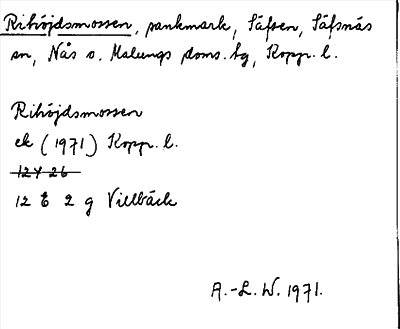 Rihöjdsmossen, sankmark, Säfsen, Säfsnäs
sn, Nås o. Malungs doms. tg, Kopp. l.
Rihöjdsmossen
ek (1971) Kopp. l.
12 Y 26
12 E 2 g Villbäck
A.-L. W. 1971.